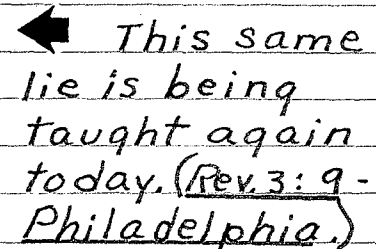 This same
lie is being
taught again
today. (Rev. 3: 9 -
Philadelphia.)